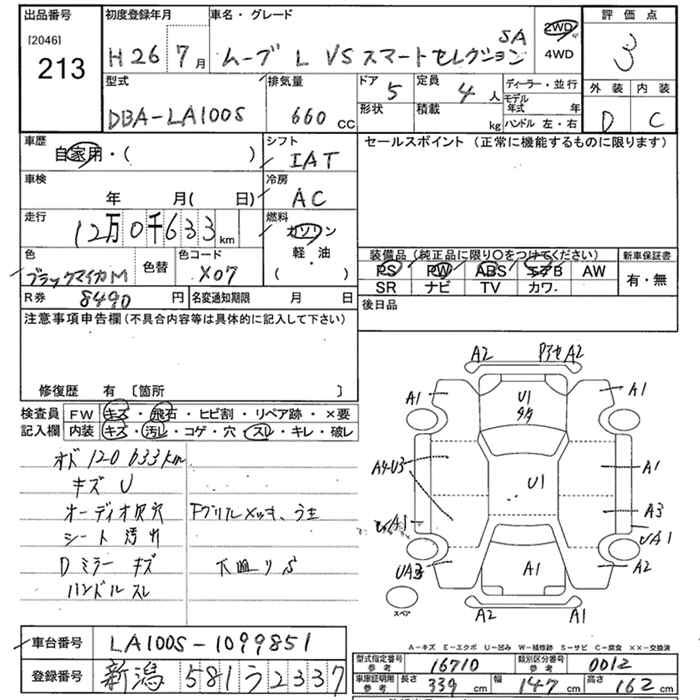 出品番号
[2046]
213
初度登録年月
H 26 7月
車名・グレード
ムーブ L VS スマートセレクション SA
2WD
4WD
評価点
3
外装 内装
D C
型式
DBA-LA100S
排気量
660 cc
ドア 5
形状
定員 4人
積載 kg
ディーラー・並行
モデル年式 年
ハンドル 左・右
車歴
自家用・( )
シフト
IAT
車検
年 月( 日)
冷房
AC
走行
12万0千633km
燃料
ガソリン
軽・油
( )
色
ブラックマイカM
色替
色コード
X07
R券 8490円
名変通知期限 月 日
セールスポイント (正常に機能するものに限ります)
装備品 (純正品に限り○をつけてください)
PS PW ABS エアB AW
SR ナビ TV カワ.
新車保証書
有・無
後日品
注意事項申告欄 (不具合内容等は具体的に記入して下さい)
修復歴 有 〔箇所 〕
検査員 FW キズ・飛石・ヒビ割・リペア跡・×要
記入欄 内装 キズ・汚レ・コゲ・穴・スレ・キレ・破レ
オド 120633km
キズ U
オーディオ取穴
シート 汚れ
Dミラー キズ
ハンドル スレ
A2 A2
A1 U1 A1
A4・U3 U1 A1
A3
A1 UA1
UA3 A1 A2
スペア
A2 A1
A-キズ E-エクボ U-凹み W-補修跡 S-サビ C-腐食 XX-交換済
車台番号 LA100S-1099851
登録番号 新潟 581 う 2337
型式指定番号 参考 16710
類別区分番号 参考 0012
車庫証明用 参考 長さ 339 cm 幅 147 cm 高さ 162 cm